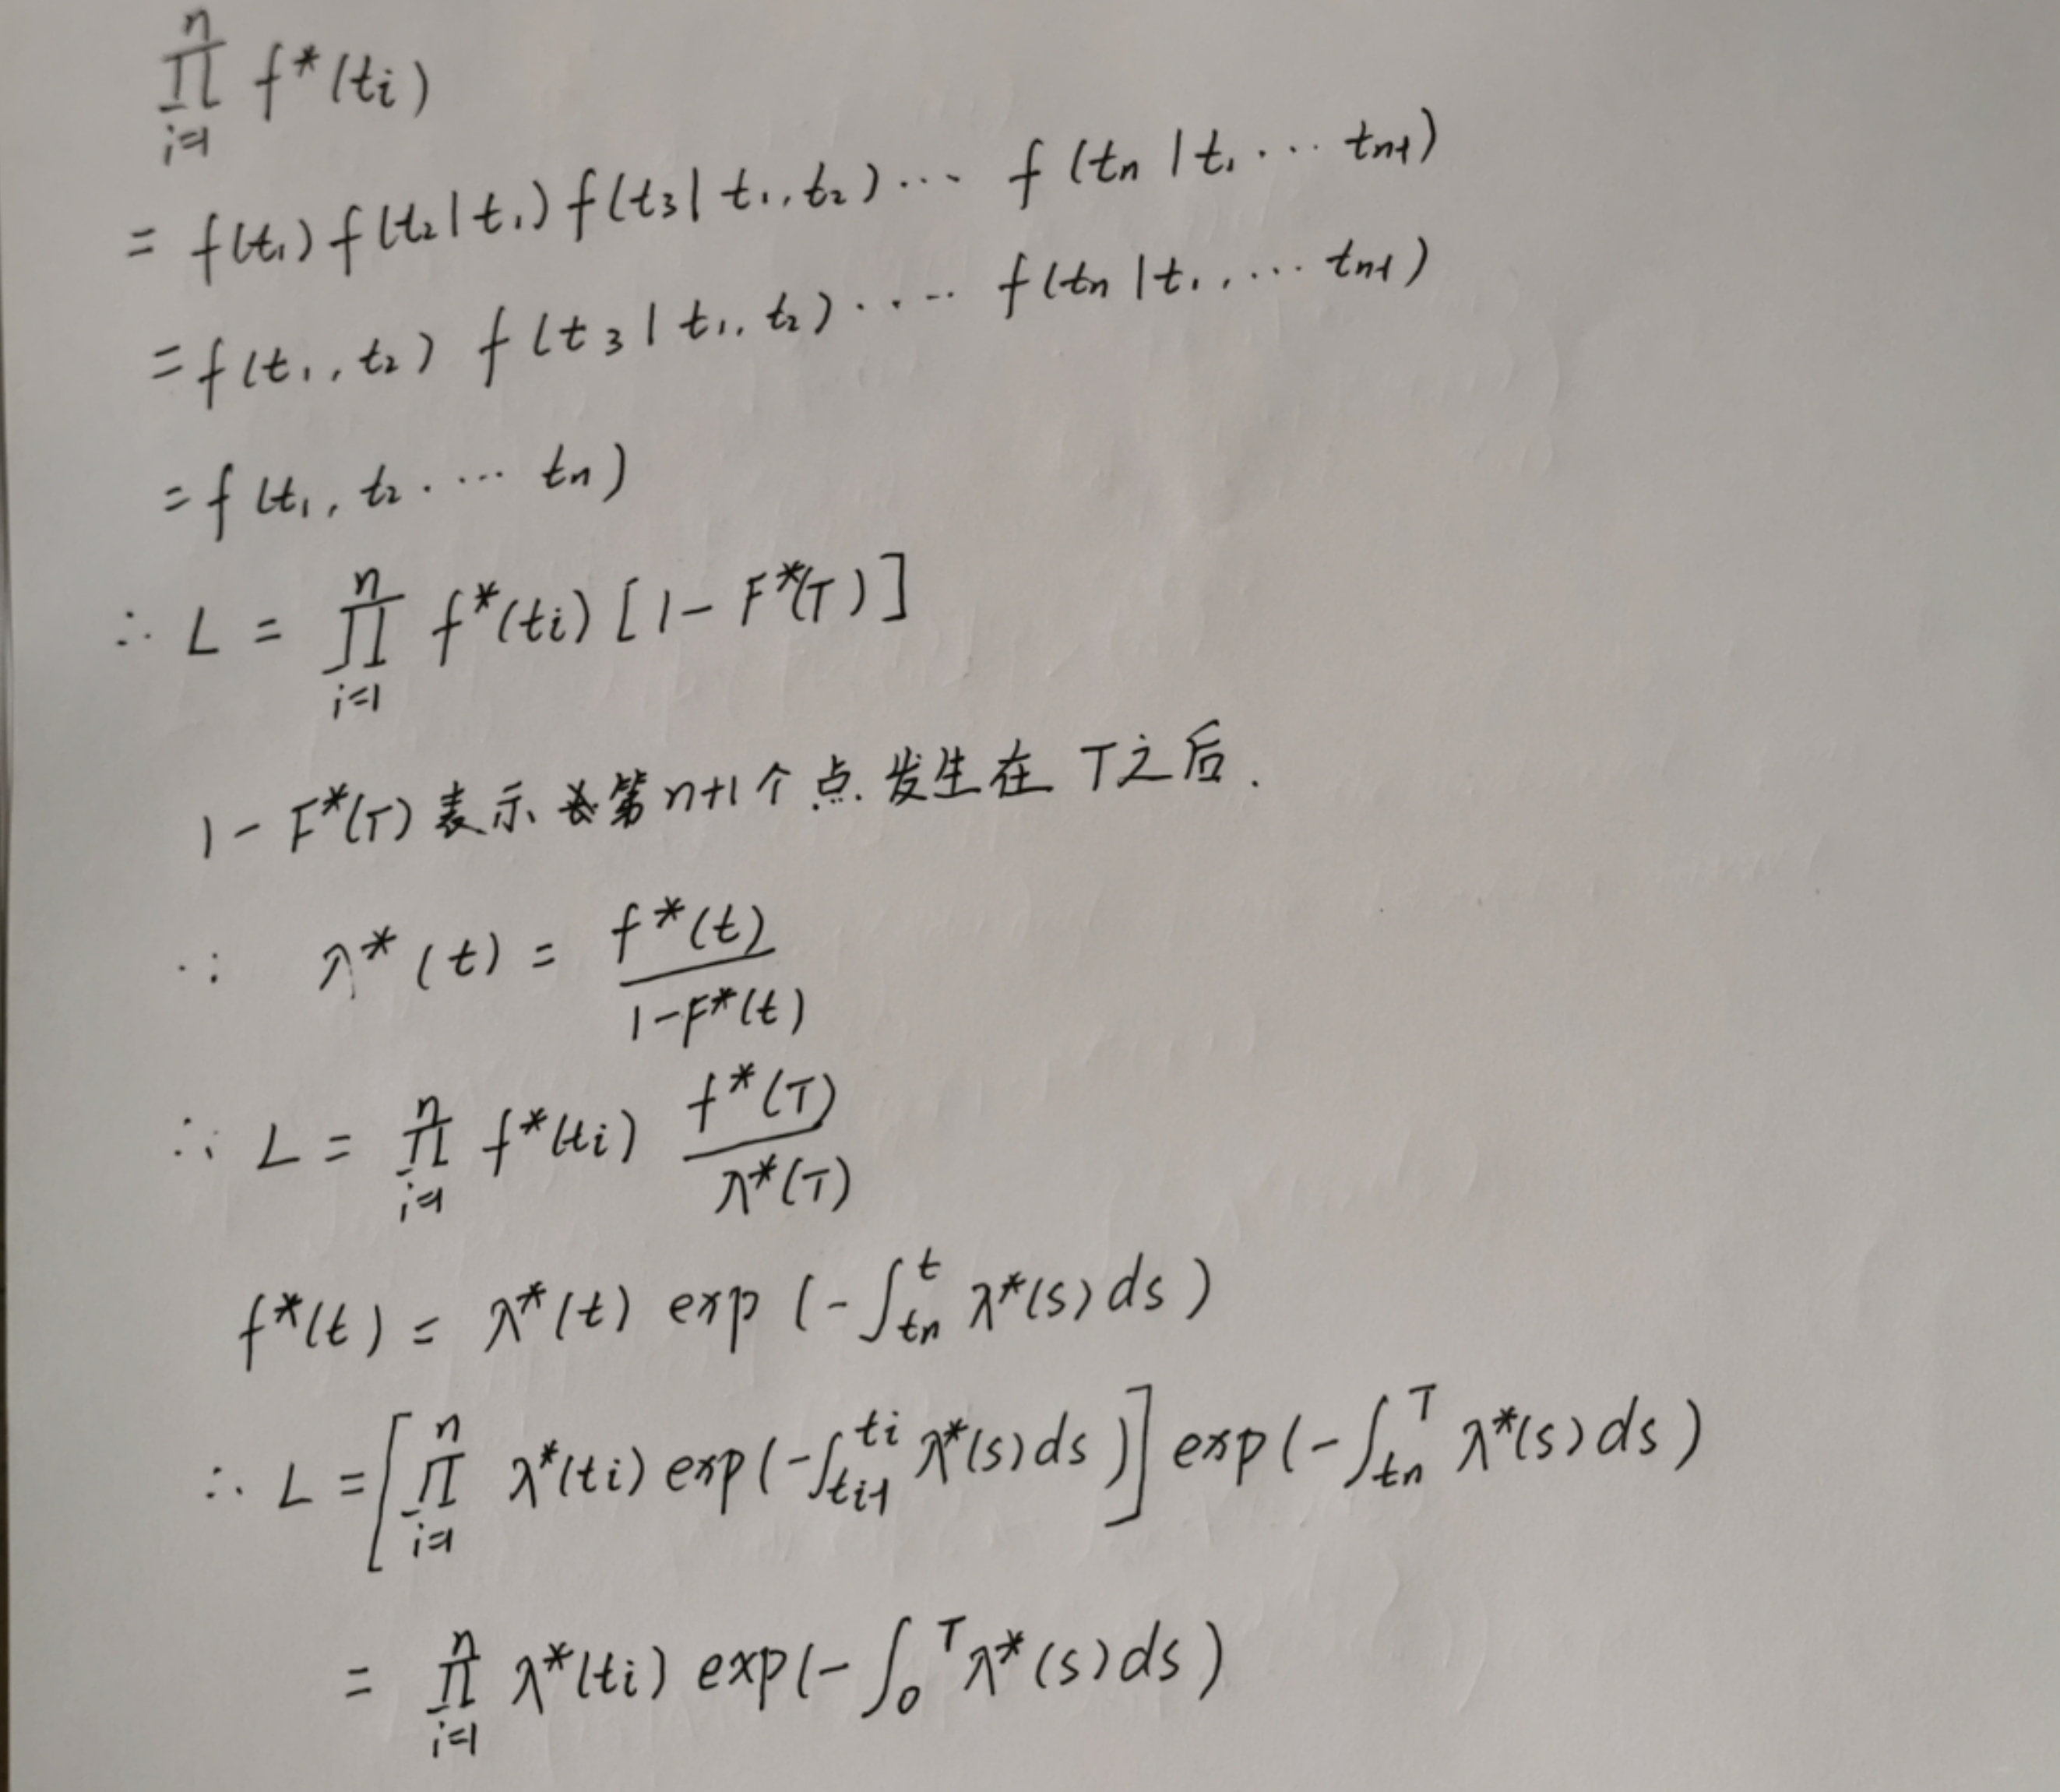 ∏_{i=1}^{n} f*(ti)
= f(t₁) f(t₂|t₁) f(t₃|t₁,t₂)··· f(tn|t₁···tn-1)
= f(t₁,t₂) f(t₃|t₁,t₂)···· f(tn|t₁,···tn-1)
= f(t₁,t₂···· tn)
∴ L = ∏_{i=1}^{n} f*(ti) [1 - F*(T)]
1 - F*(T) 表示第n+1个点发生在T之后.
∵ λ*(t) = f*(t) / (1 - F*(t))
∴ L = ∏_{i=1}^{n} f*(ti) f*(T) / λ*(T)
f*(t) = λ*(t) exp(-∫_{tn}^{t} λ*(s)ds)
∴ L = [∏_{i=1}^{n} λ*(ti) exp(-∫_{ti-1}^{ti} λ*(s)ds)] exp(-∫_{tn}^{T} λ*(s)ds)
= ∏_{i=1}^{n} λ*(ti) exp(-∫_{0}^{T} λ*(s)ds)